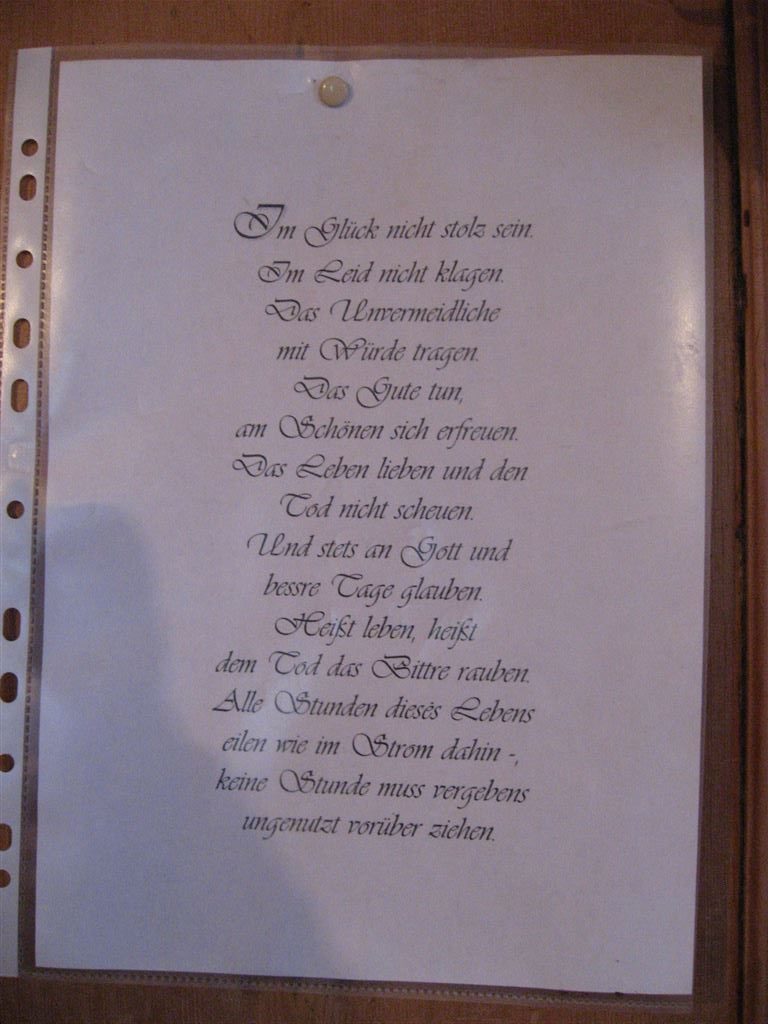 Im Glück nicht stolz sein.
Im Leid nicht klagen.
Das Unvermeidliche
mit Würde tragen.
Das Gute tun,
am Schönen sich erfreuen.
Das Leben lieben und den
Tod nicht scheuen.
Und stets an Gott und
bessre Tage glauben.
Heißt leben, heißt
dem Tod das Bittre rauben.
Alle Stunden dieses Lebens
eilen wie im Strom dahin -,
keine Stunde muss vergebens
ungenutzt vorüber ziehen.